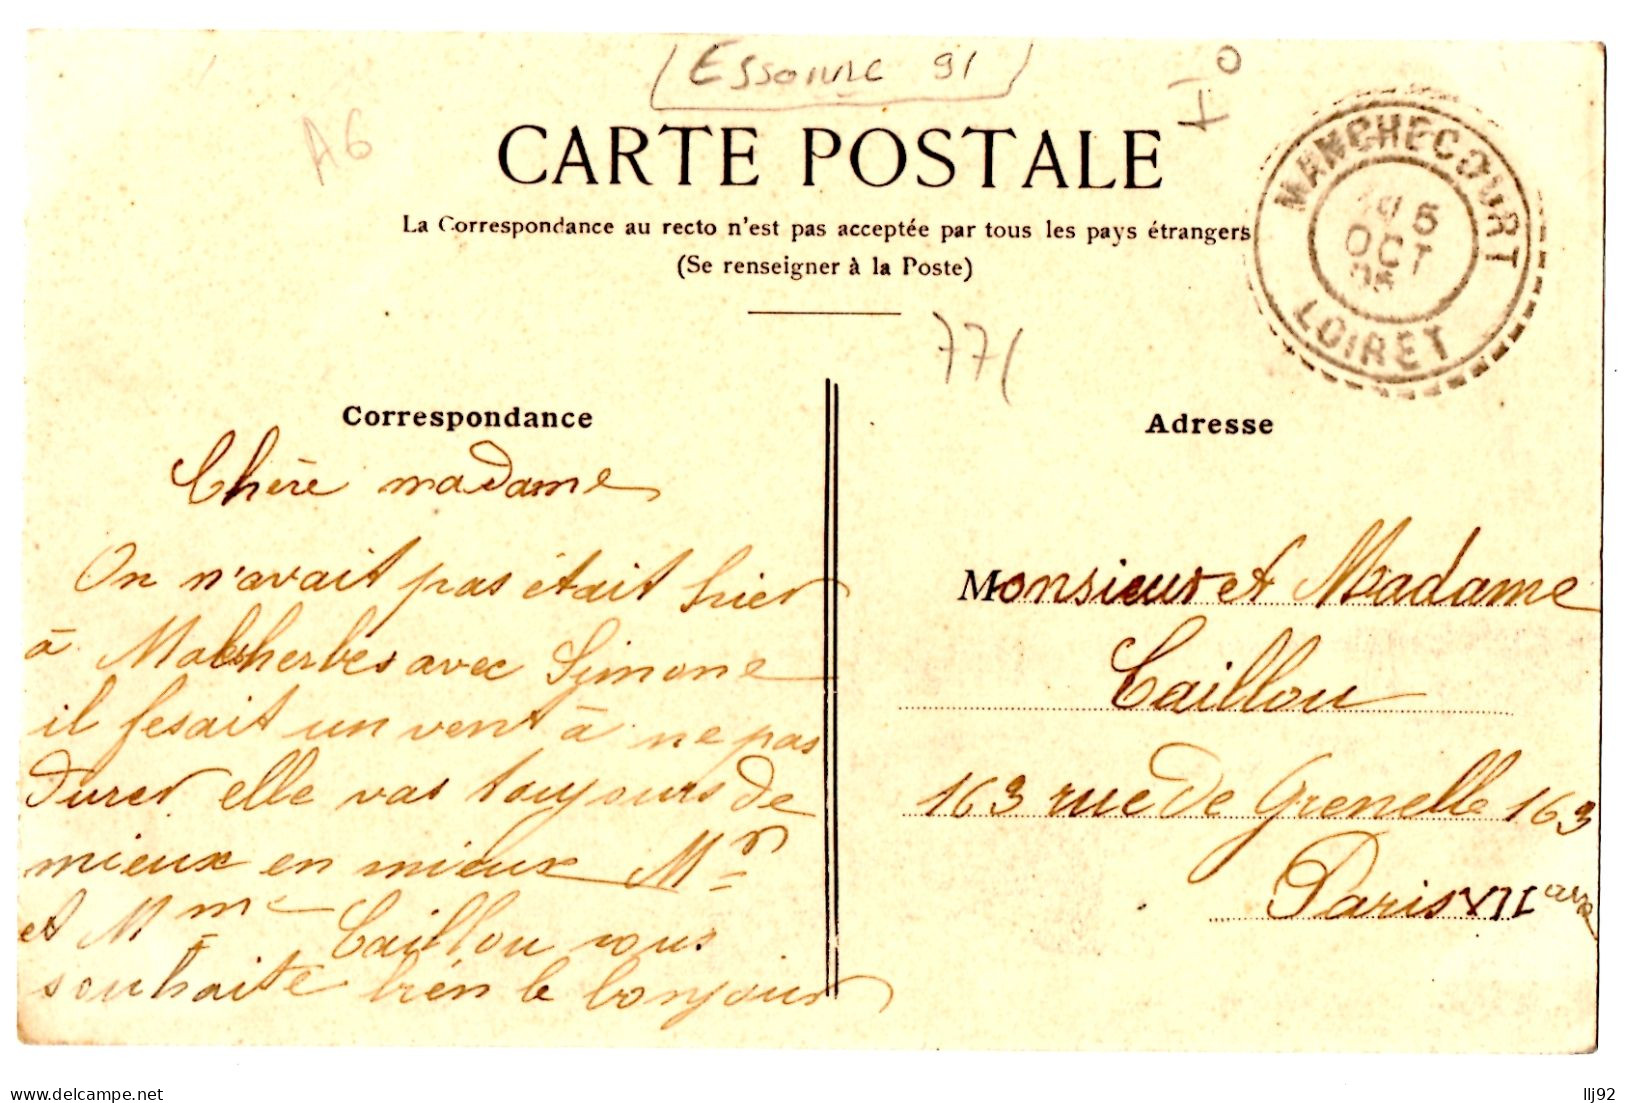 Essonne 91
I°
A6
CARTE POSTALE
La Correspondance au recto n'est pas acceptée par tous les pays étrangers
(Se renseigner à la Poste)
MANCHECOURT
5
OCT
05
LOIRET
771
Correspondance
Adresse
Chère madame
On n'avait pas était hier
à Malesherbes avec Simone
il fesait un vent à ne pas
durer elle vas toujours de
mieux en mieux Mr
et Mme Caillou vous
souhaite bien le bonjour
Monsieur et Madame
Caillou
163 rue de Grenelle 163
Paris VII
llj92